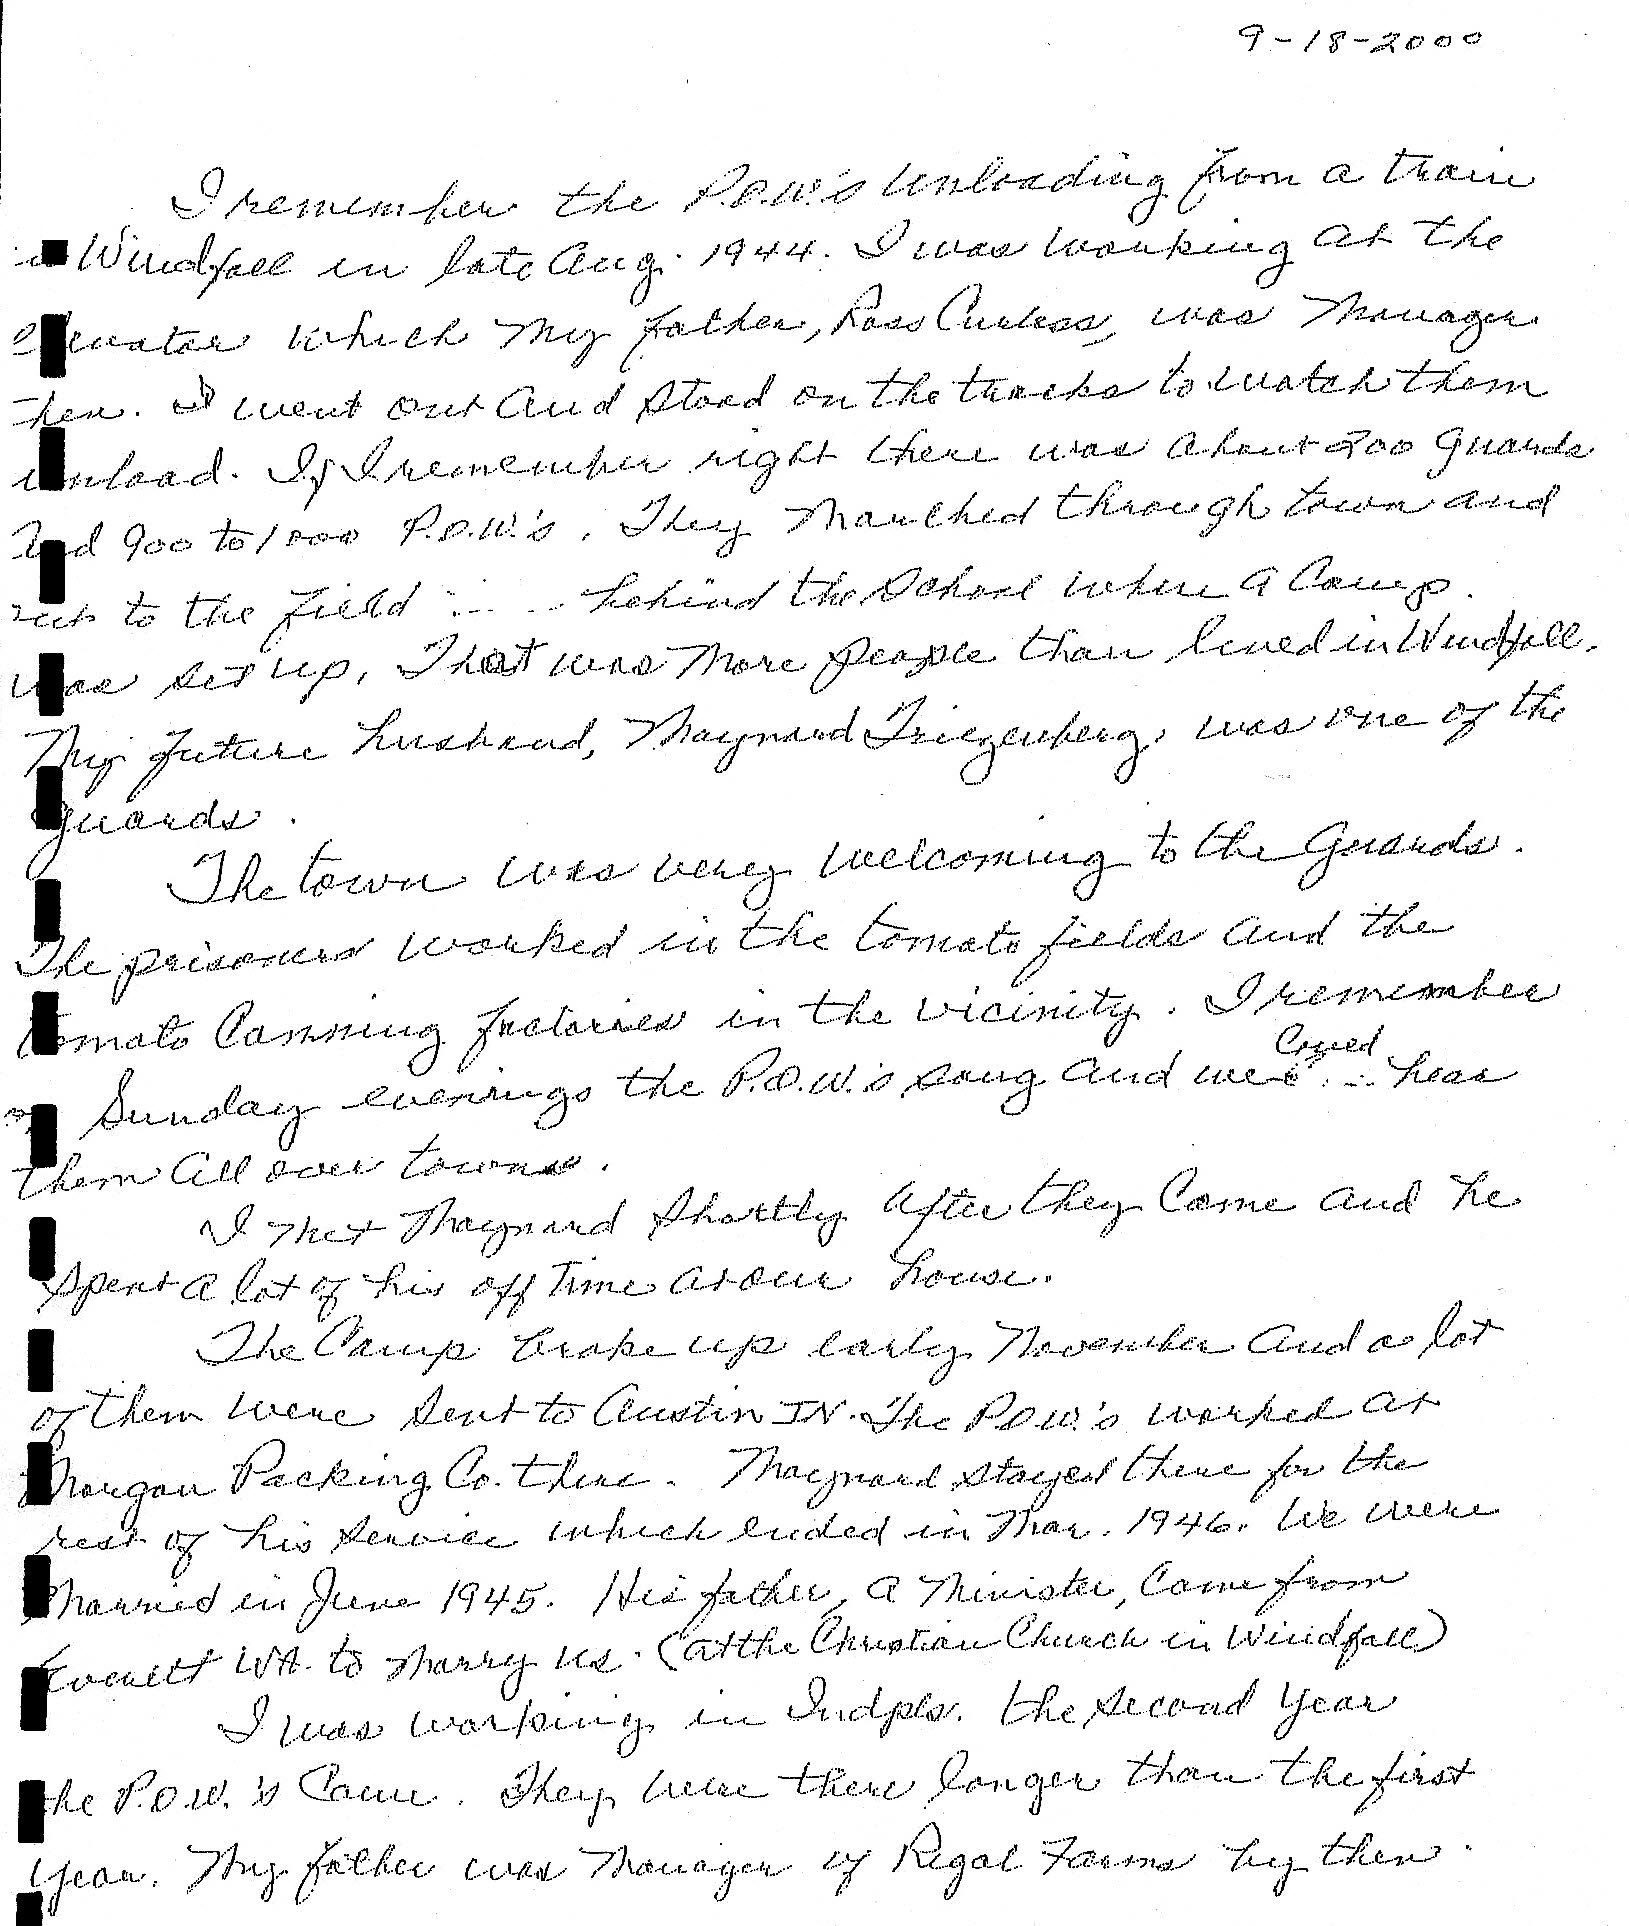 9-18-2000
I remember the P.O.W.'s unloading from a train
in Windfall in late Aug. 1944. I was working at the
elevator which my father, Ross Curless, was manager
then. I went out and stood on the tracks to watch them
unload. If I remember right there was about 200 guards
and 900 to 1000 P.O.W.'s. They marched through town and
out to the field behind the school where a camp
was set up. That was more people than lived in Windfall.
My future husband, Maynard Triezenberg, was one of the
guards.
The town was very welcoming to the guards.
The prisoners worked in the tomato fields and the
tomato canning factories in the vicinity. I remember
Sunday evenings the P.O.W.'s sang and we could hear
them all over town.
I met Maynard shortly after they came and he
spent a lot of his off time at our house.
The camp broke up early November and a lot
of them were sent to Austin IN. The P.O.W.'s worked at
Morgan Packing Co. there. Maynard stayed there for the
rest of his service which ended in Mar. 1946. We were
married in June 1945. His father, a minister, came from
Everett WA. to marry us. (at the Christian Church in Windfall)
I was working in Indpls. the second year
the P.O.W.'s came. They were there longer than the first
year. My father was manager of Regal Farms by then.